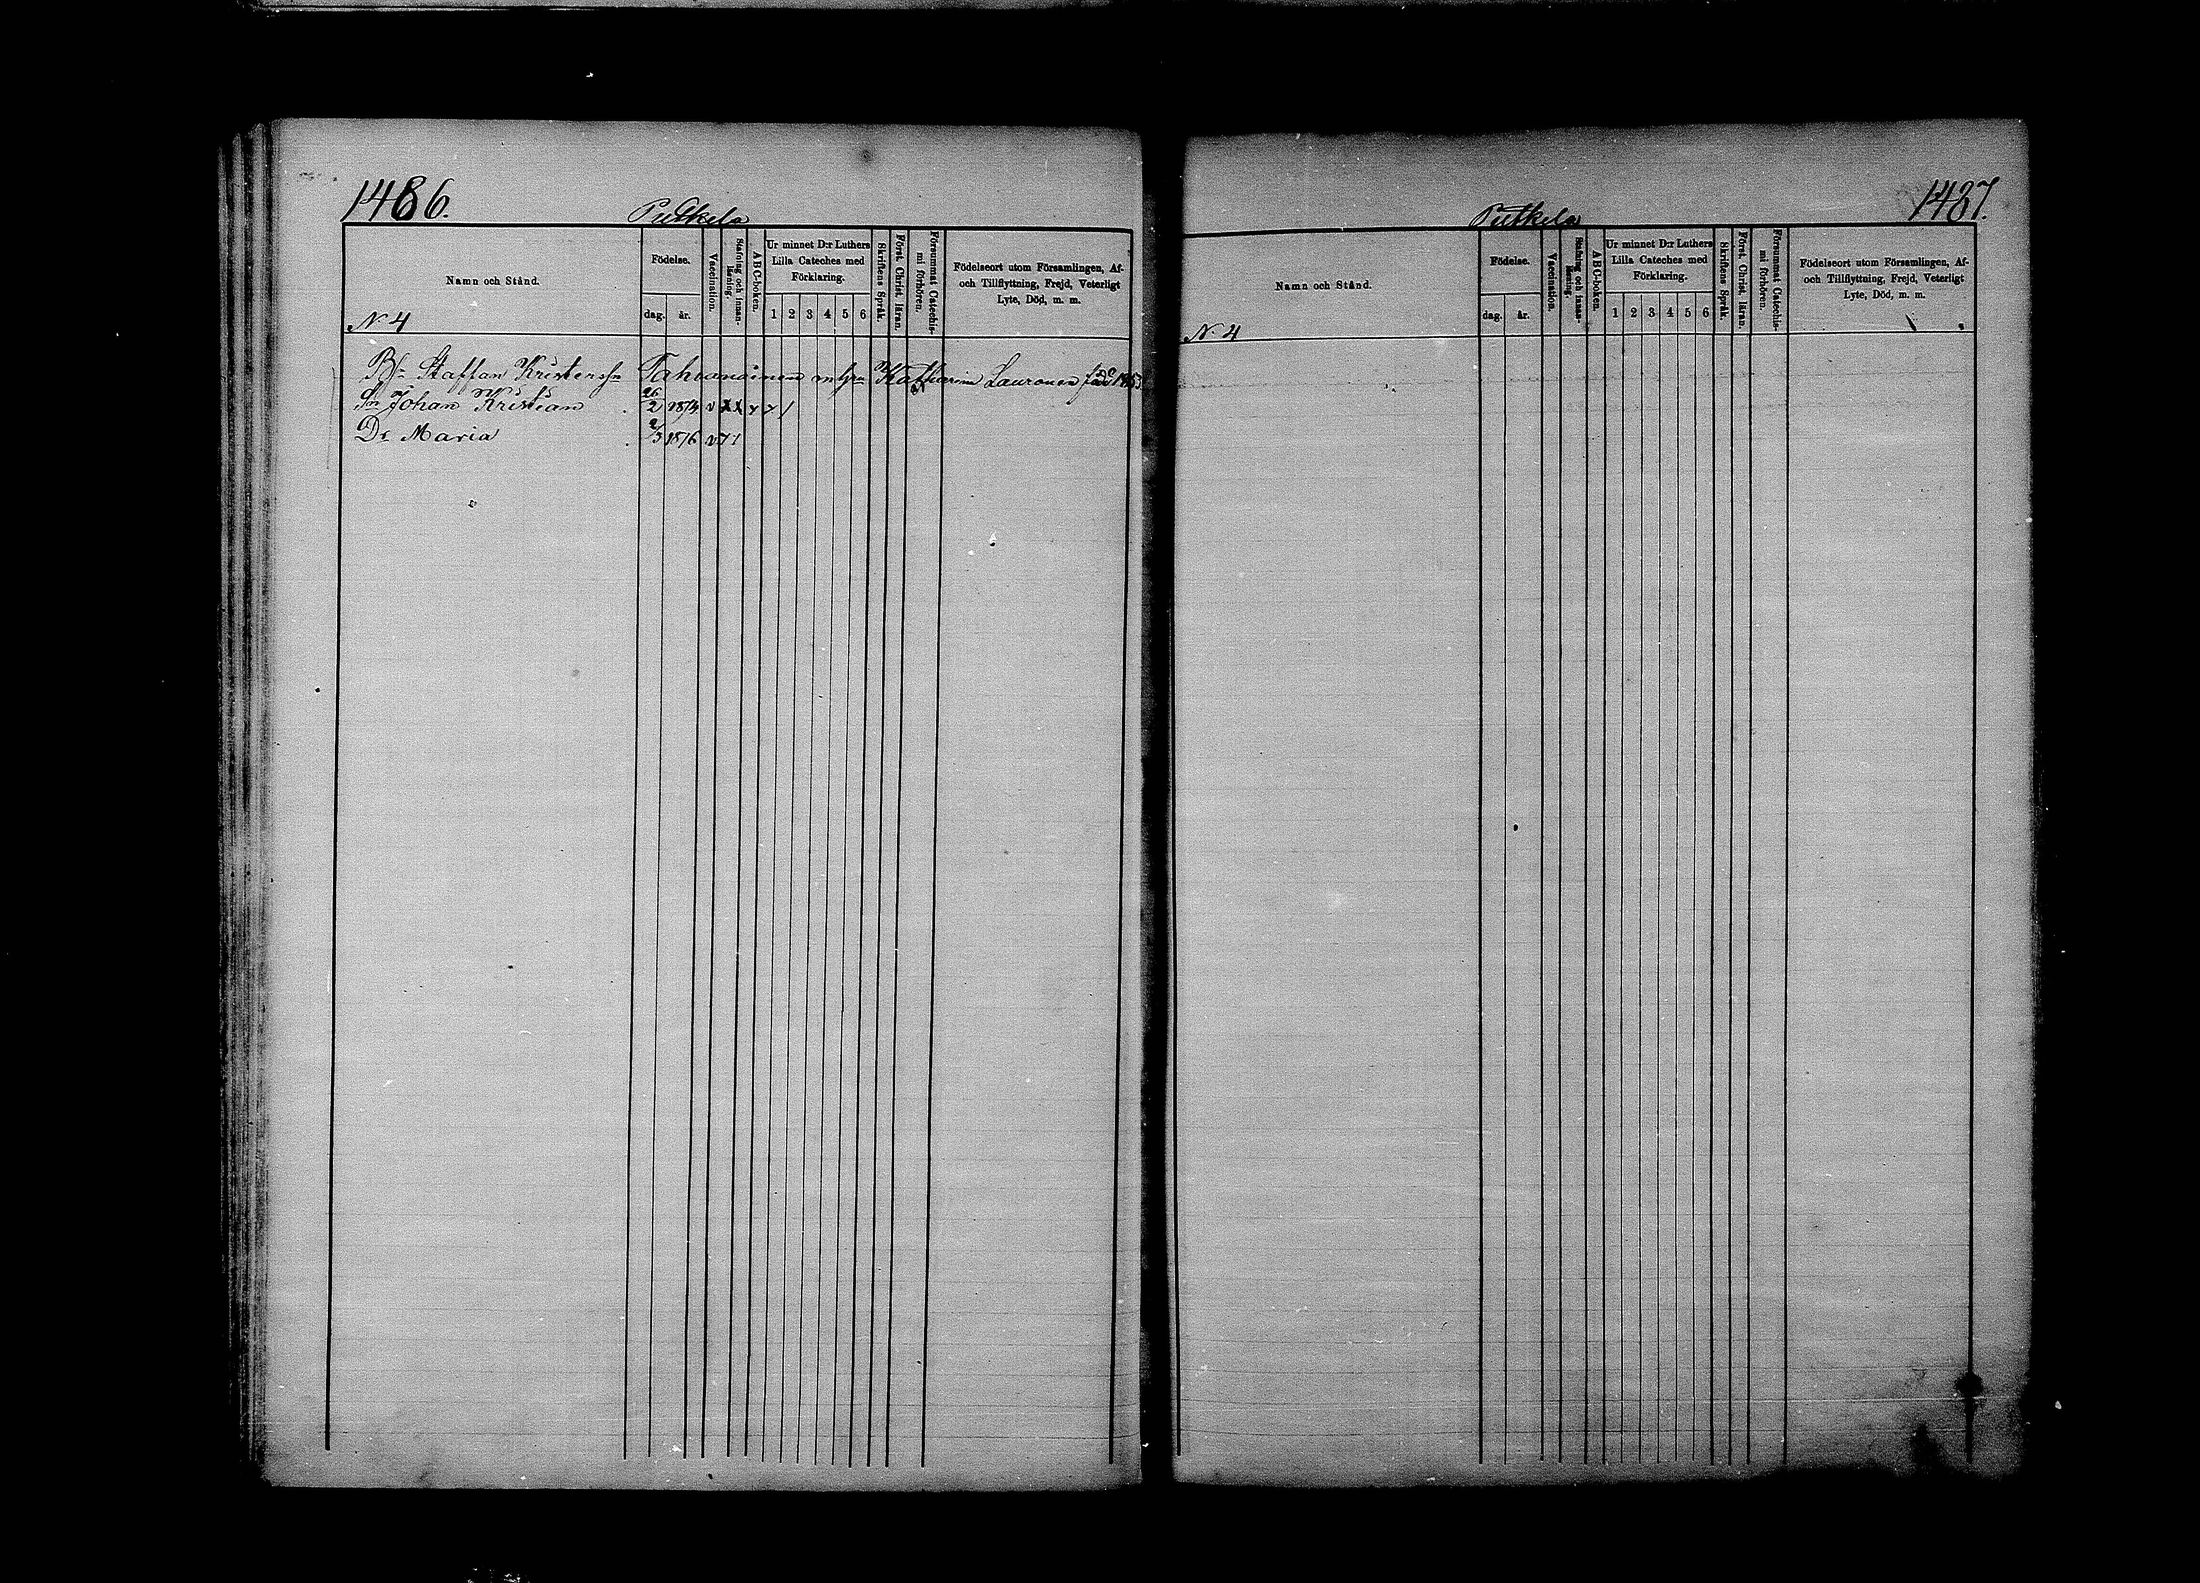 1486.
Putkela
Namn och Stånd.
Födelse.
dag.
år.
Vaccination.
Stafning och innan-
läsning.
ABC-boken.
Ur minnet D:r Luthers
Lilla Cateches med
Förklaring.
1 2 3 4 5 6
Skriftens Språk.
Först. Christ. läran.
Försummat Catechis-
mi förhören.
Födelseort utom Församlingen, Af-
och Tillflyttning, Frejd, Veterligt
Lyte, Död, m. m.
N. 4
Staffan Kristenss:n Tahvanainen Katharina Lauronen
Sn Johan Kristian 26/2 1874 v x x
Dr Maria 2/3 1876 v
1487.
Putkela
Namn och Stånd.
Födelse.
dag.
år.
Vaccination.
Stafning och innan-
läsning.
ABC-boken.
Ur minnet D:r Luthers
Lilla Cateches med
Förklaring.
1 2 3 4 5 6
Skriftens Språk.
Först. Christ. läran.
Försummat Catechis-
mi förhören.
Födelseort utom Församlingen, Af-
och Tillflyttning, Frejd, Veterligt
Lyte, Död, m. m.
N. 4